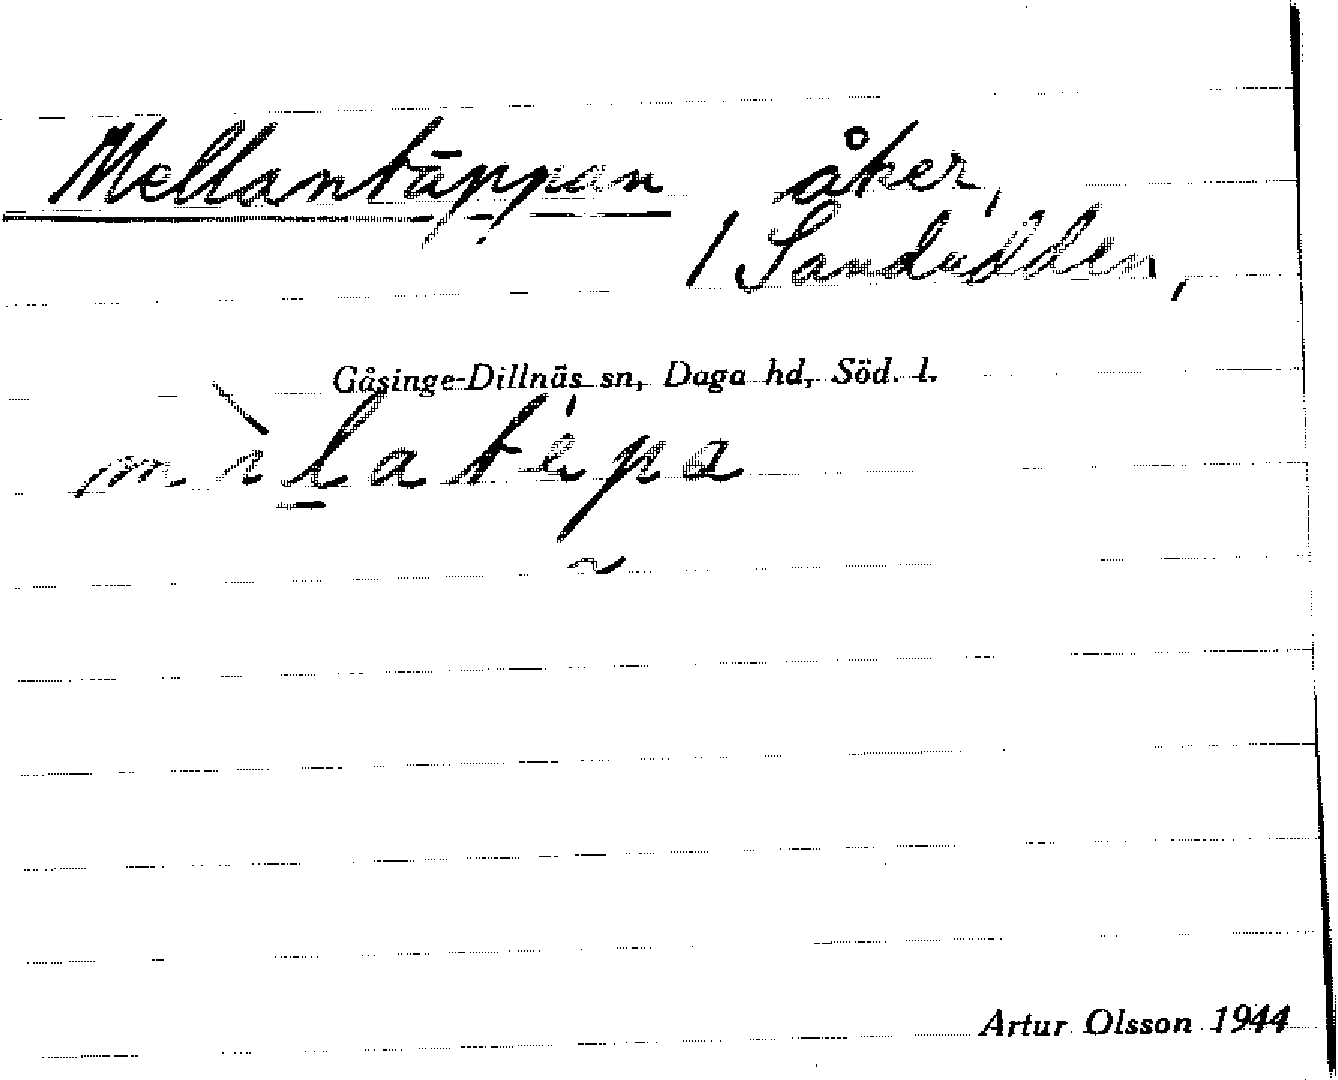 Mellantäppan åker,
/ Sandudden,
Gåsinge-Dillnäs sn, Daga hd, Söd. l.
Artur Olsson 1944